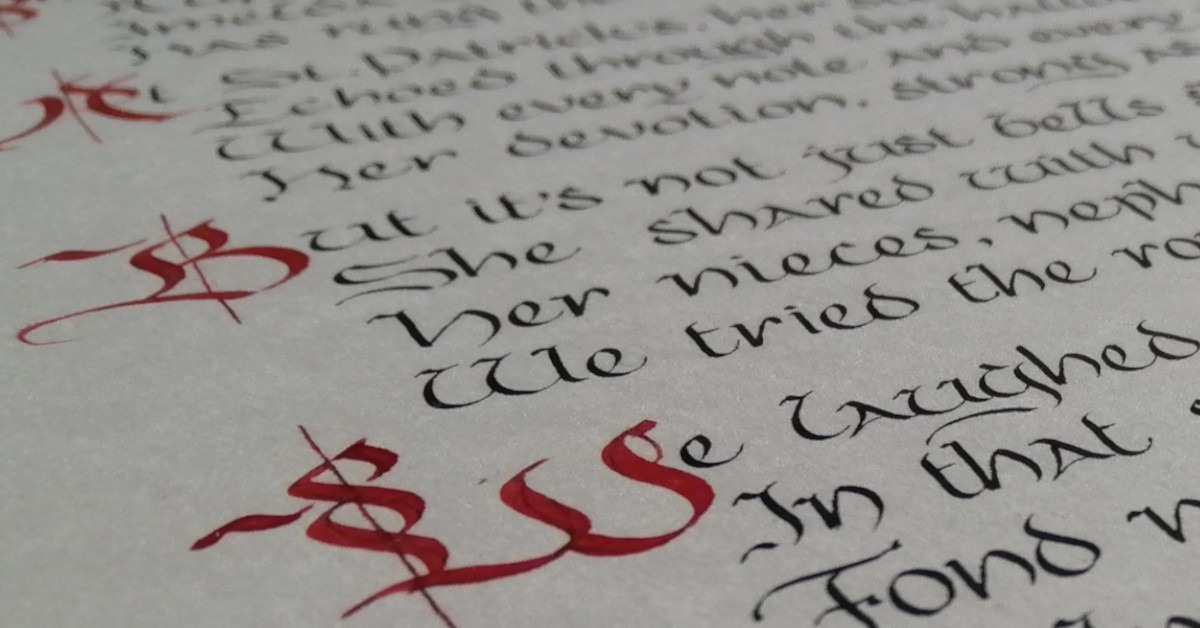 St. Patrick's, her
At Echoed through the
With every note and every
Her devotion, strong as
But it's not just bells
She shared with
Her nieces, neph
We tried the ro
We laughed
In that
Fond